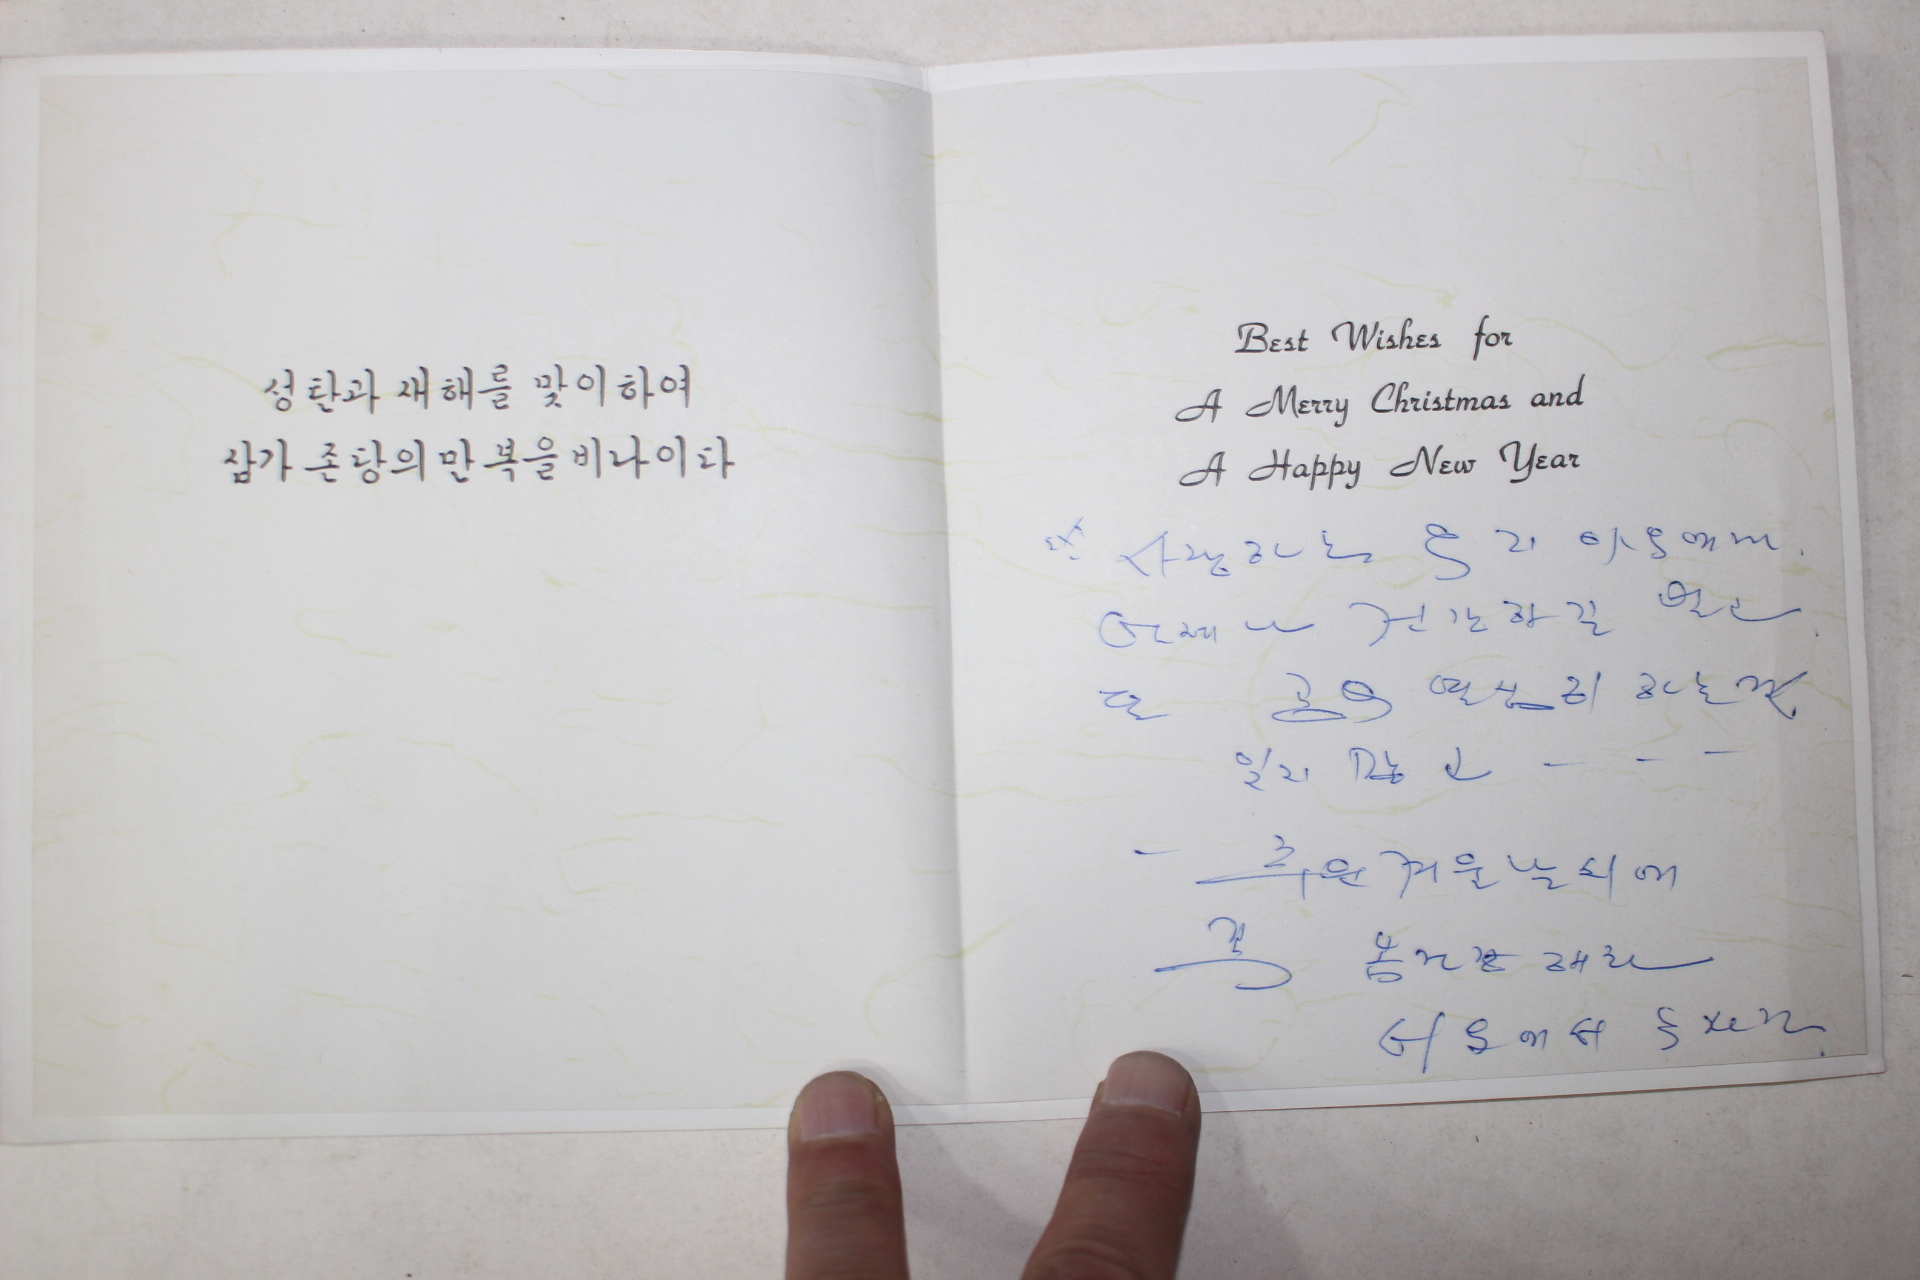 성탄과 새해를 맞이하여
삼가 존당의 만복을 비나이다
Best Wishes for
A Merry Christmas and
A Happy New Year
사랑하는
언제나 건강하길
또 공부 열심히 하는
잊지 말고 - - -
- 추운 겨울 날씨에
꼭 몸건강해라
서울에서